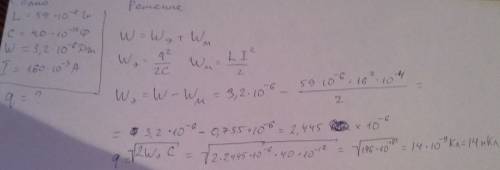 Дано
L = 59 · 10⁻⁶ Гн
C = 40 · 10⁻¹² Ф
W = 3,2 · 10⁻⁶ Дж
I = 160 · 10⁻³ А
q = ?
Решение
W = Wэ + Wм
Wэ = q²/2C Wм = LI²/2
Wэ = W - Wм = 3,2 · 10⁻⁶ - 59 · 10⁻⁶ · 16² · 10⁻⁴/2 =
= 3,2 · 10⁻⁶ - 0,755 · 10⁻⁶ = 2,445 × 10⁻⁶
q = √2Wэ C = √2 · 2,445 · 10⁻⁶ · 40 · 10⁻¹² = √196 · 10⁻¹⁸ = 14 · 10⁻⁹ Кл = 14 нКл